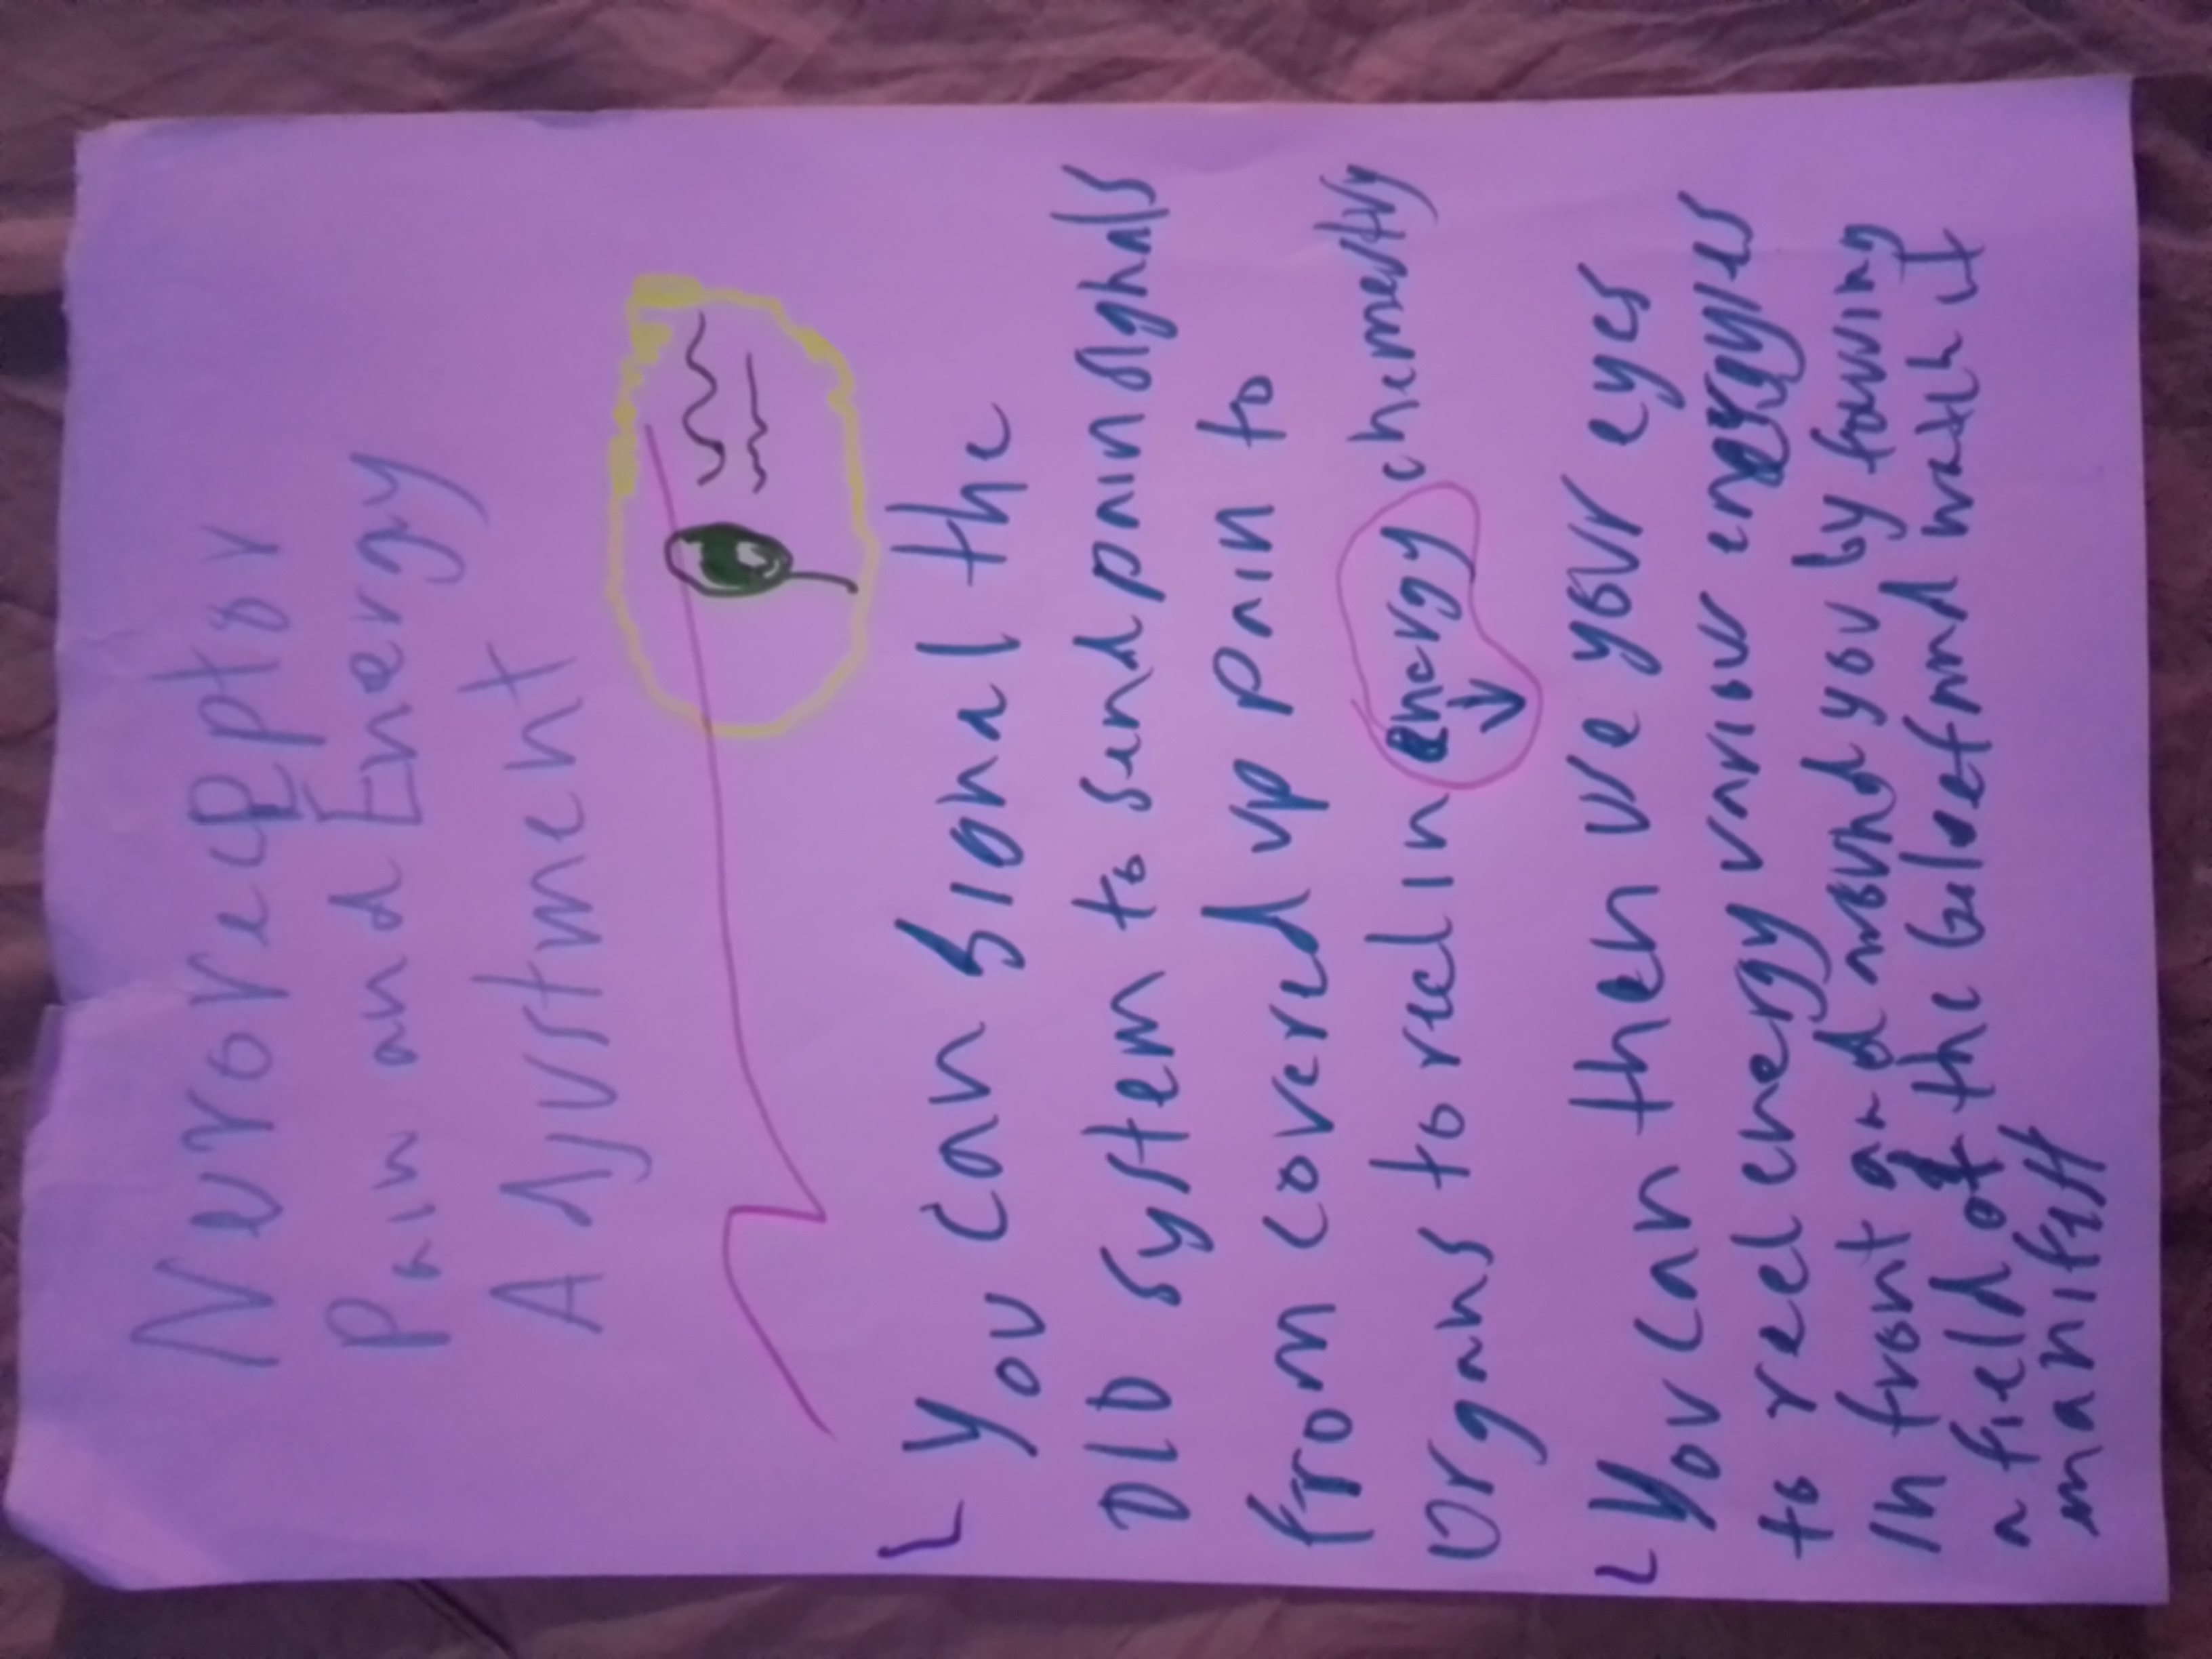 Neuroreceptor
Pain and Energy
Adjustment
You can signal the
old system to send pain sighals
from coverd up pain to
organs to reel in energy chemestry
You can then use your eyes
to reel energy variow
in front and around you by
a field of the and watch it